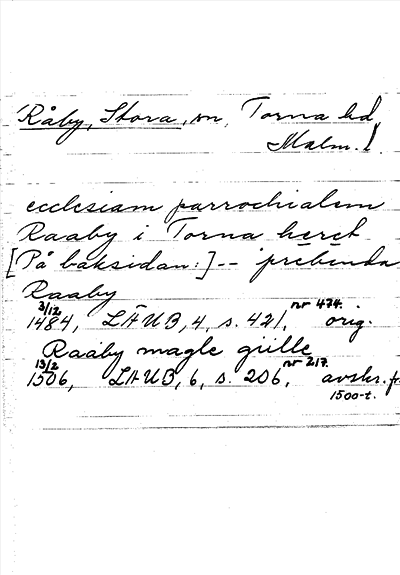 Råby, Stora, sn, Torna hd
Malm. l.
ecclesiam parrochialem
Raaby i Torna heret
[På baksidan:] -- prebenda
Raaby
3/12 1484, LÄUB, 4, s. 421, nr 474. orig.
Raaby magle gille
13/2 1506, LÄUB, 6, s. 206, nr 217. avskr. fr.
1500-t.